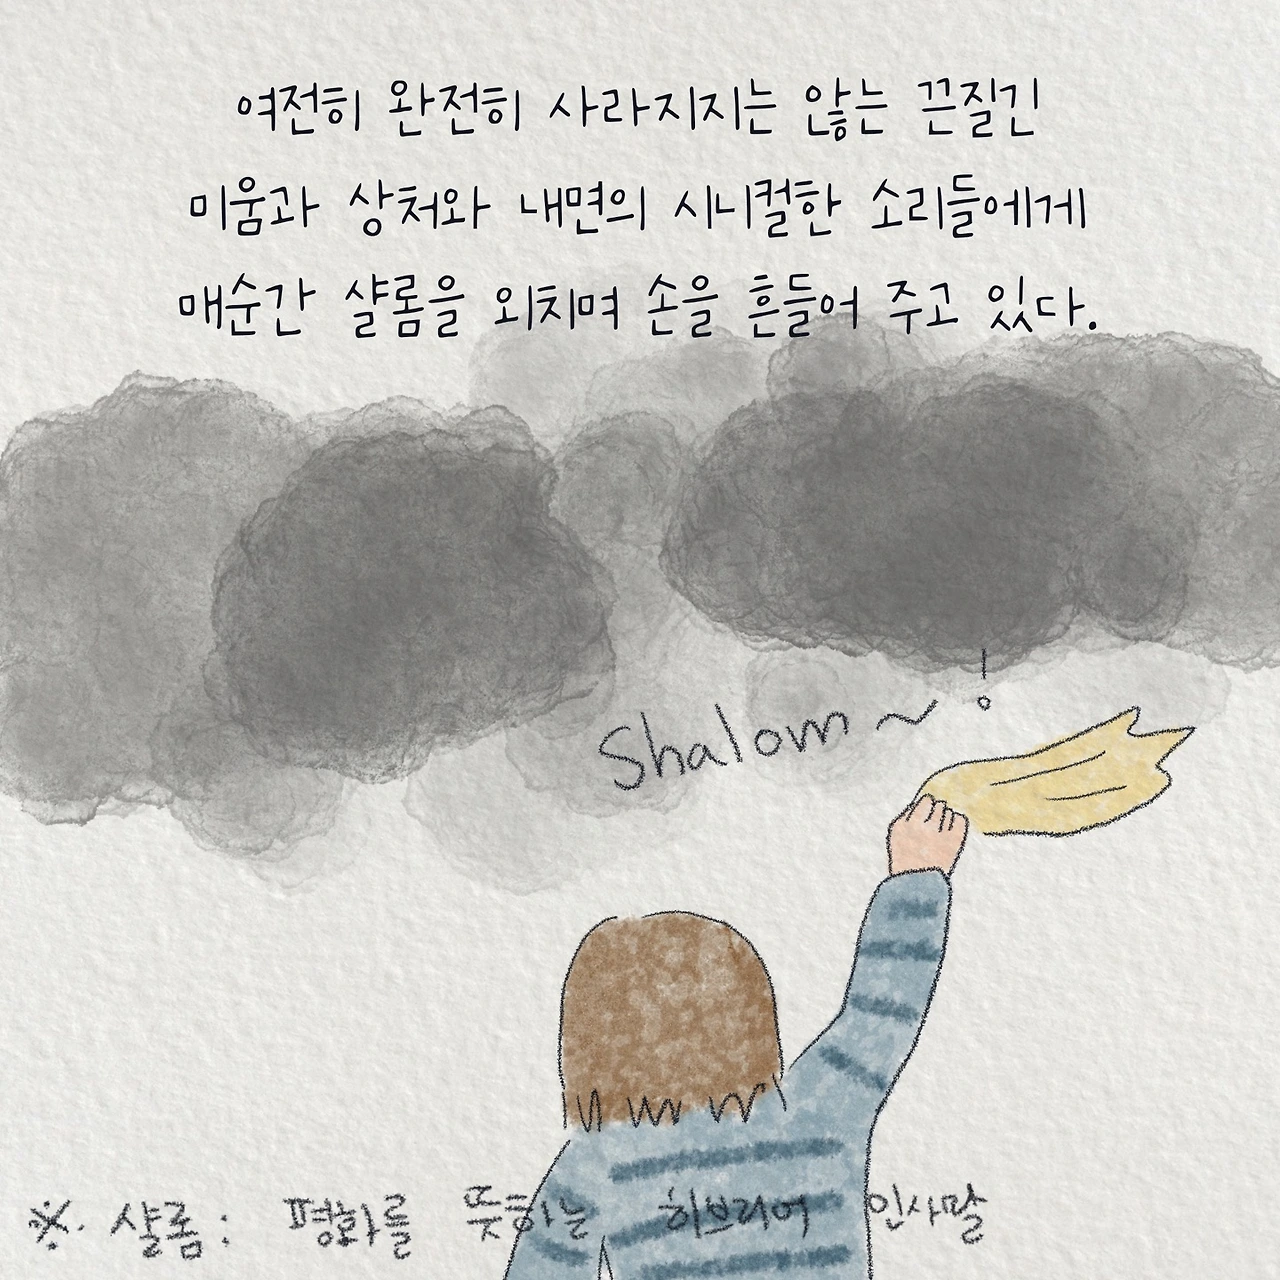 여전히 완전히 사라지지는 않는 끈질긴
미움과 상처와 내면의 시니컬한 소리들에게
매순간 샬롬을 외치며 손을 흔들어 주고 있다.
Shalom ~ !
※. 샬롬 : 평화를 뜻하는 히브리어 인사말